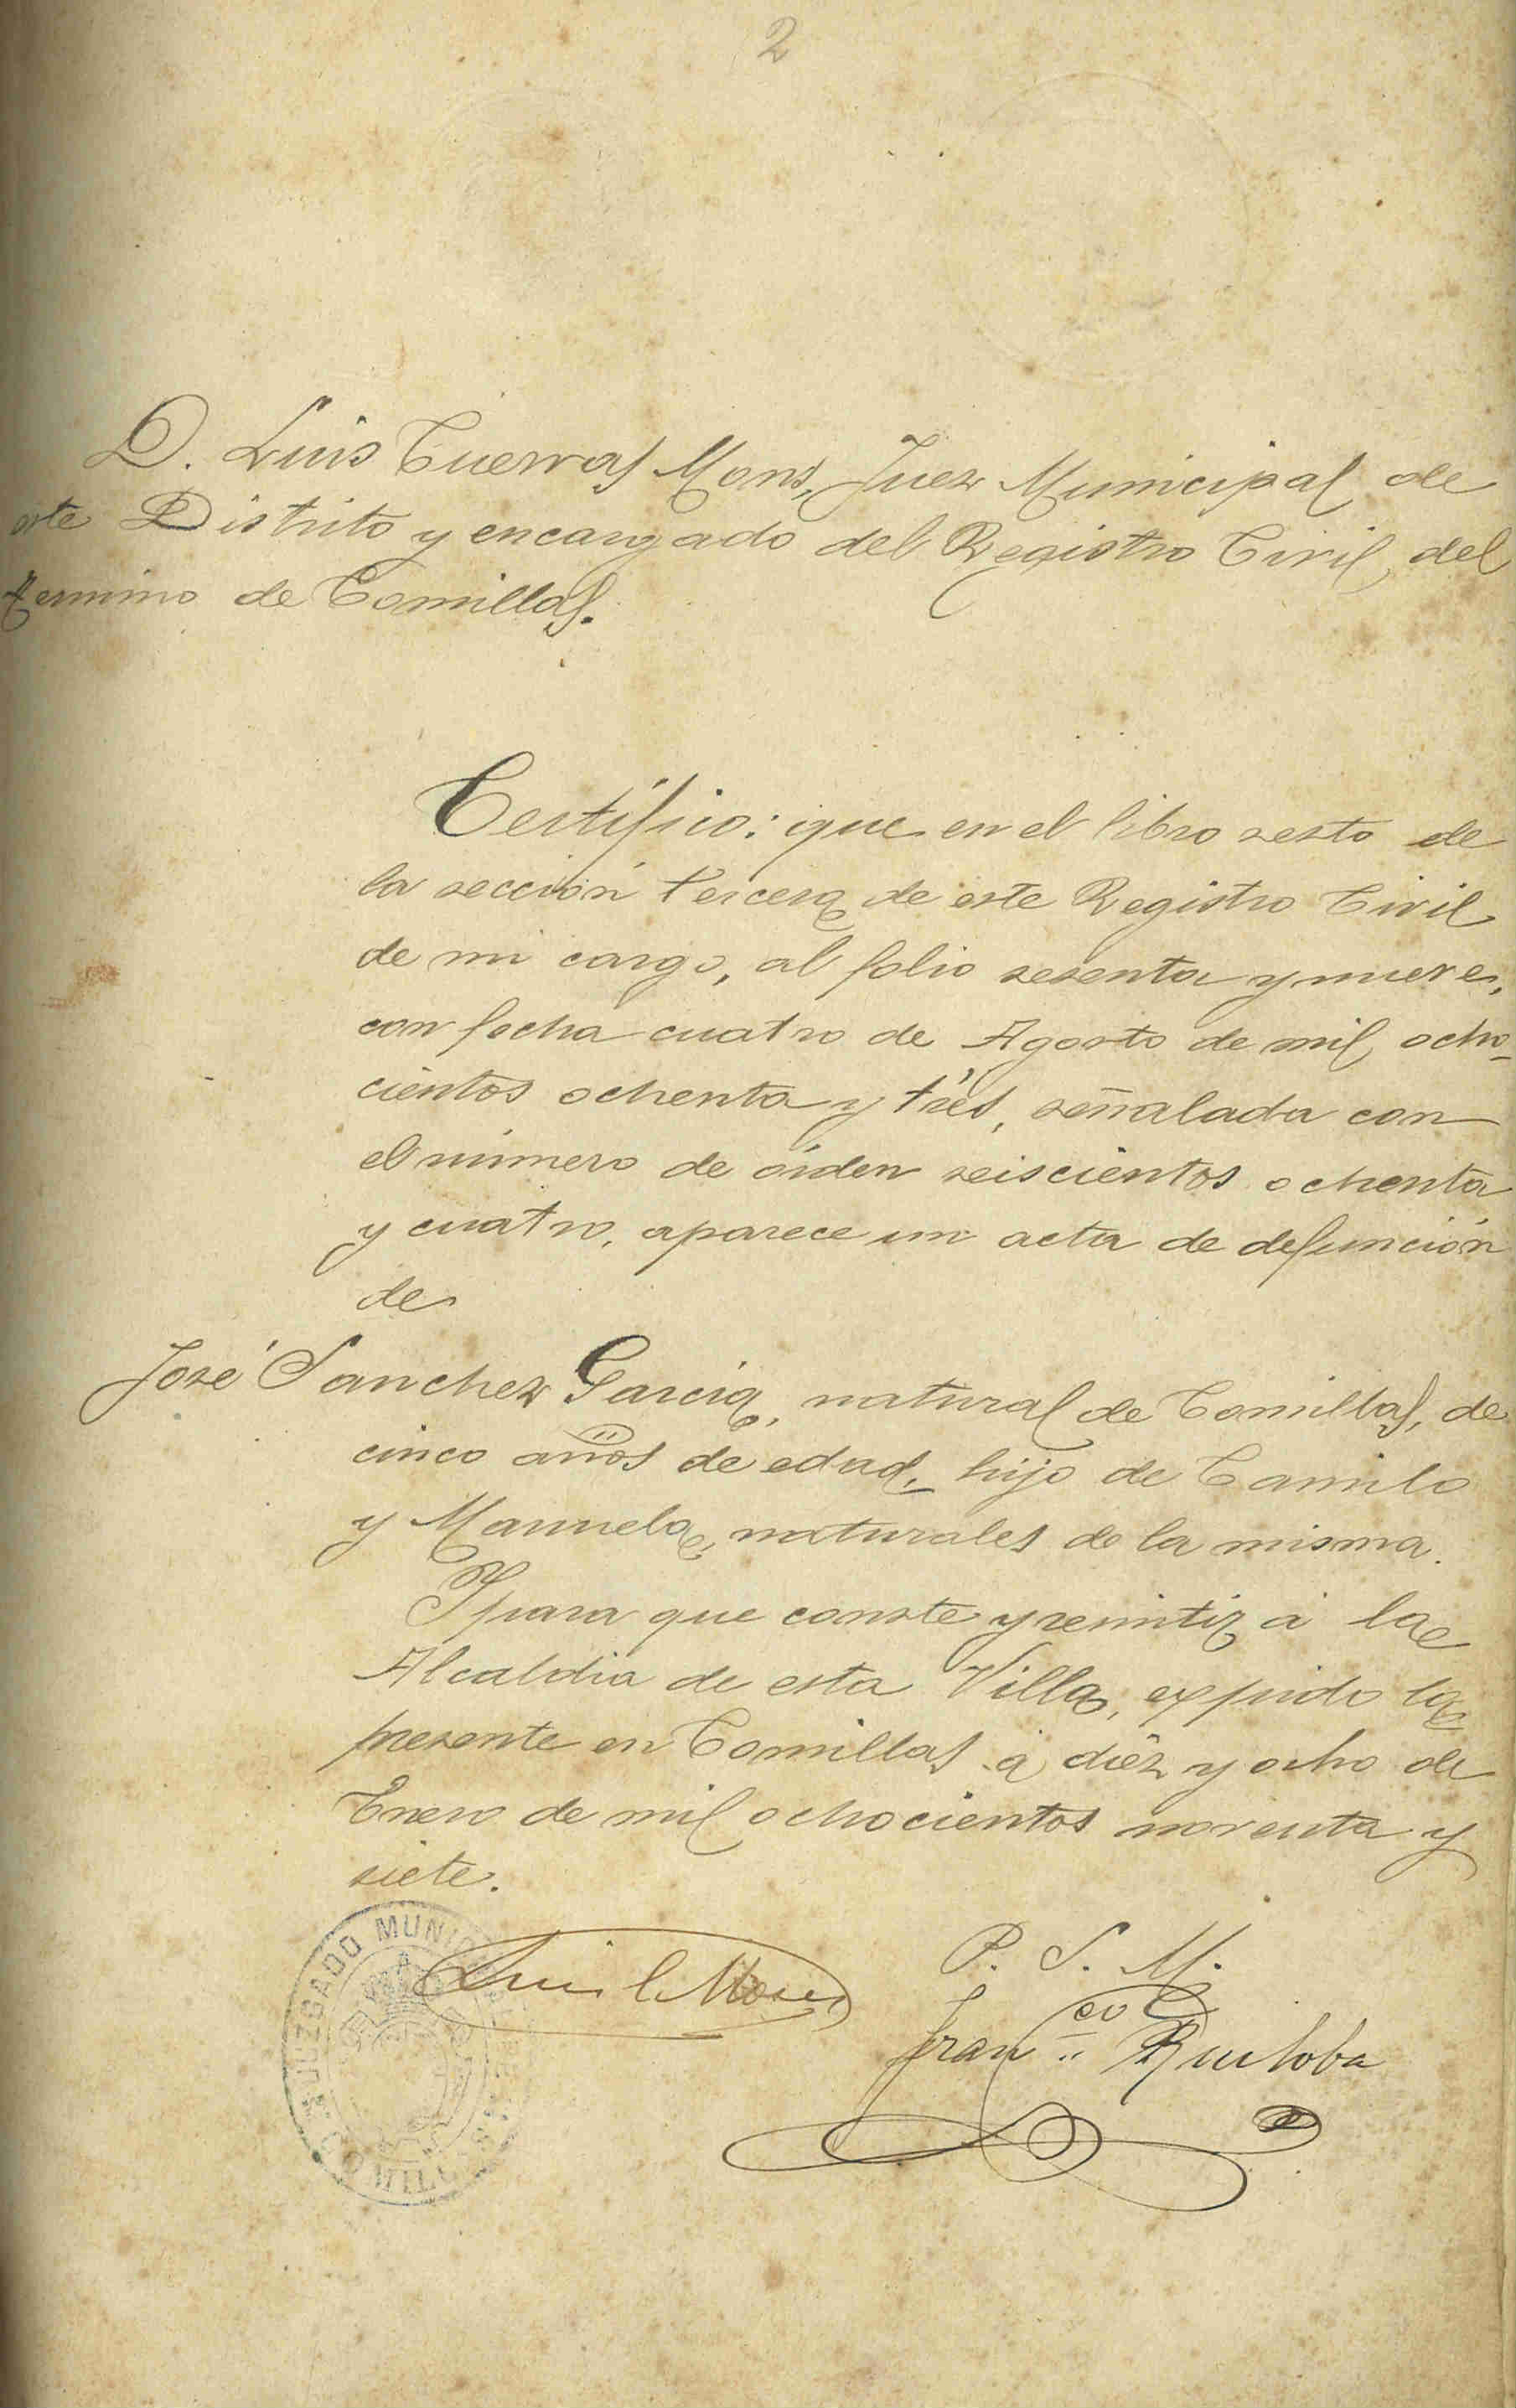 2
D. Luis Cuerras Mons, Juez Municipal de
este Distrito y encargado del Registro Civil del
termino de Comillas.
Certifico: que en el libro sesto de
la sección tercera de este Registro Civil
de mi cargo, al folio sesenta y nueve,
con fecha cuatro de Agosto de mil ocho-
cientos ochenta y tres, señalada con
el número de órden seiscientos ochenta
y cuatro, aparece un acta de defunción
de
José Sanchez Garcia, natural de Comillas, de
cinco años de edad, hijo de Camilo
y Manuela, naturales de la misma.
Y para que conste y remitir á la
Alcaldia de esta Villa, expido la
presente en Comillas á diéz y ocho de
Enero de mil ochocientos noventa y
siete.
P. S. M.
Luis C. Mons
Fran.co Ruiloba
JUZGADO MUNICIPAL
COMILLAS